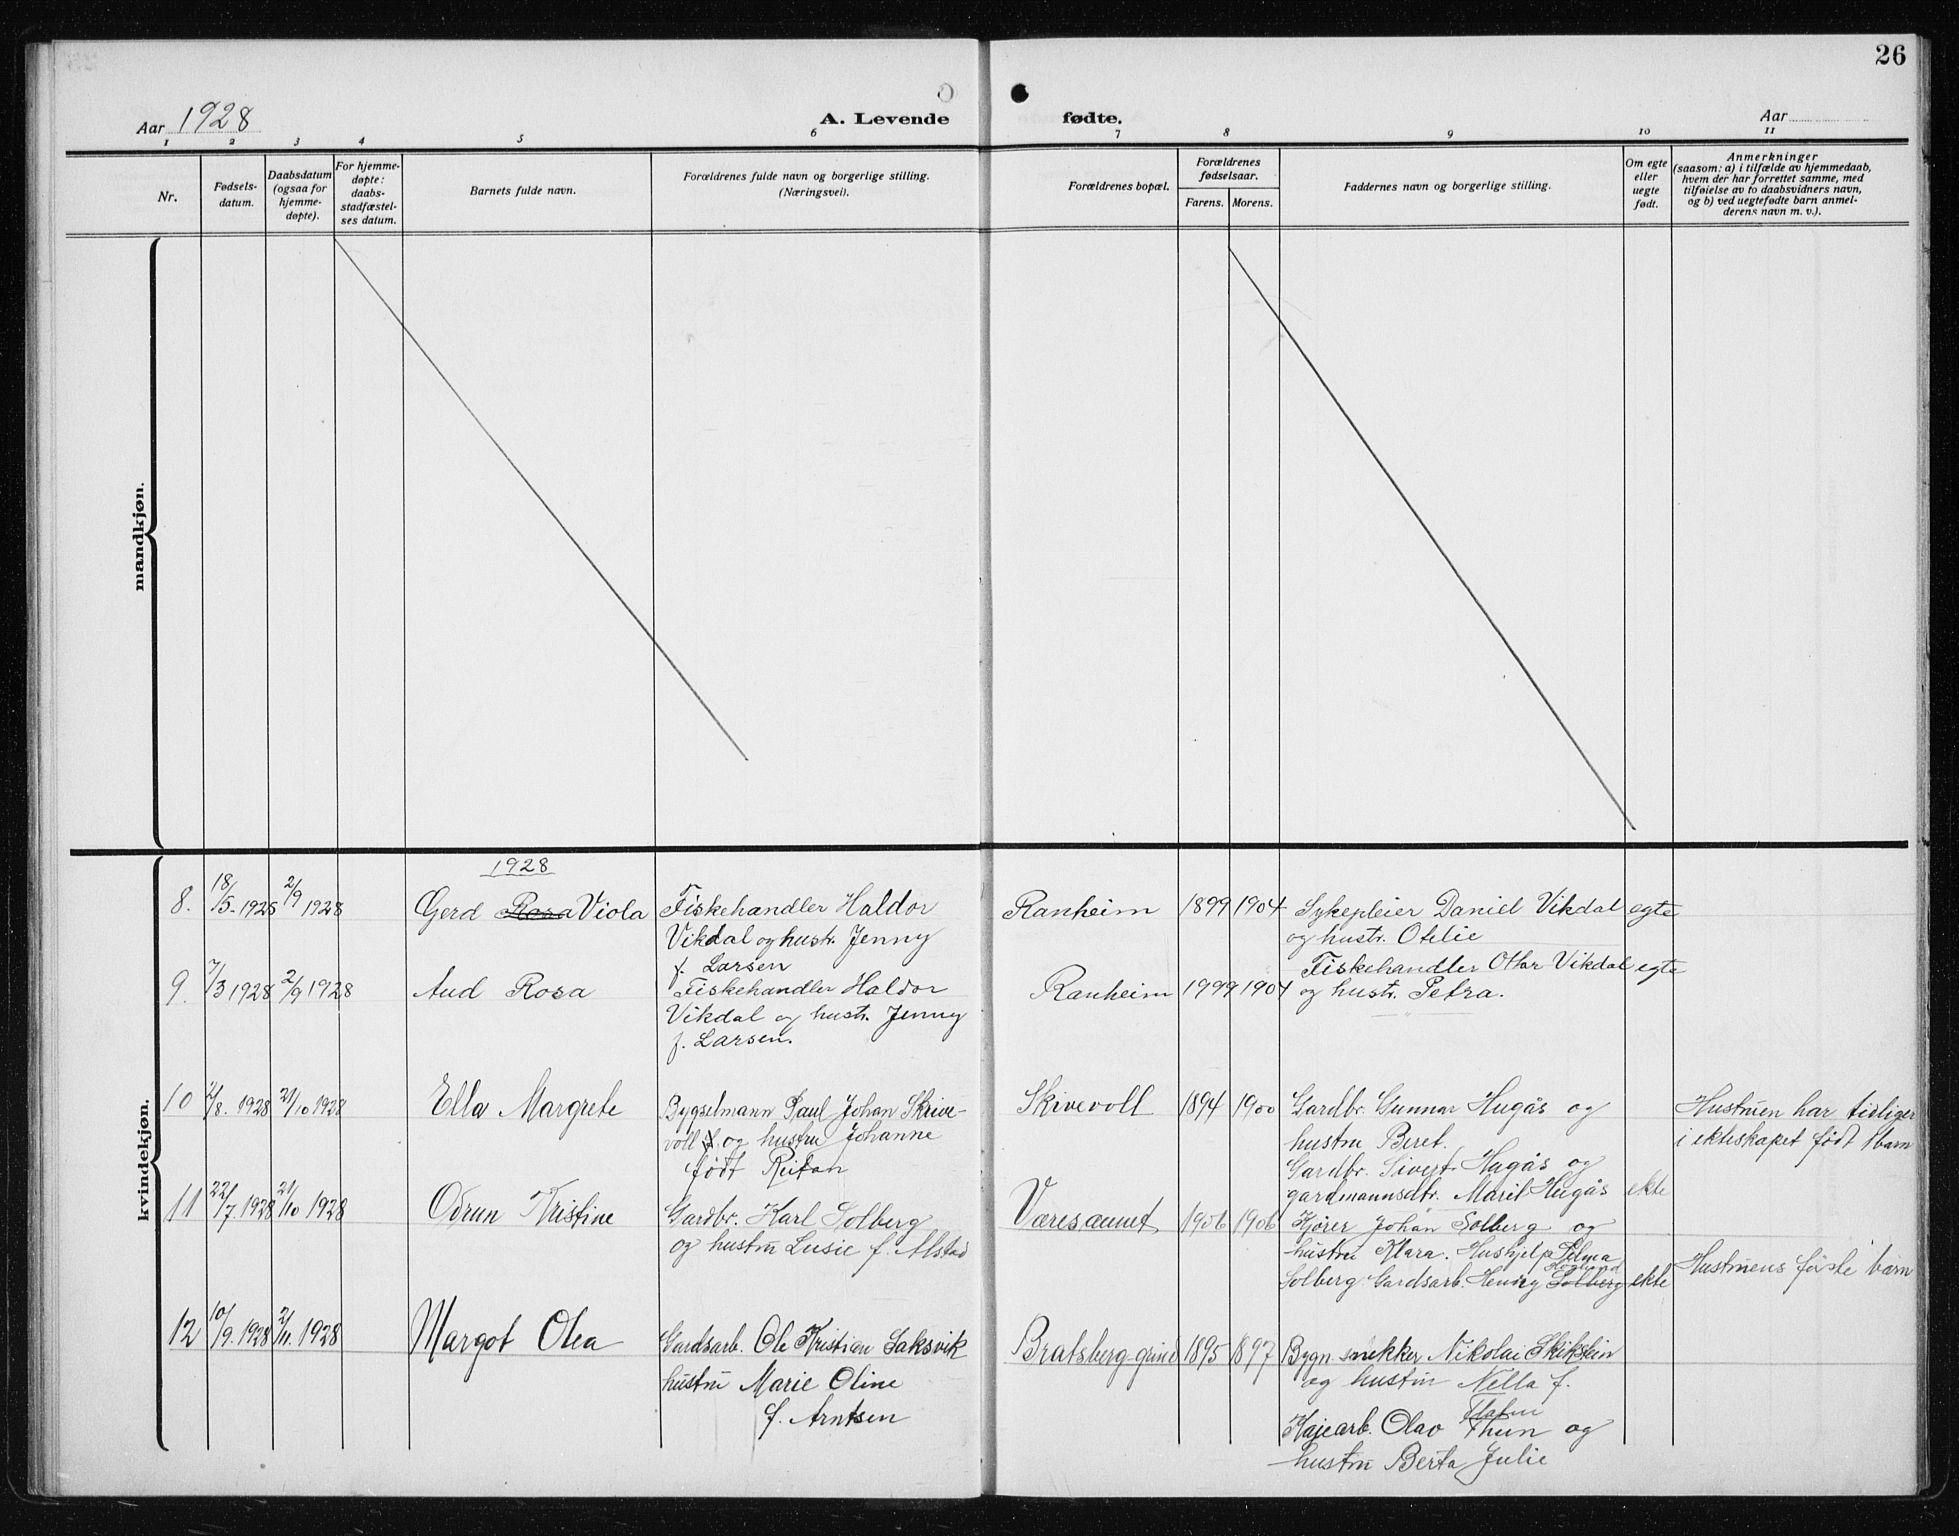 26
Aar 1928
A. Levende
fødte.
Aar
1 2 3 4 5 6 7 8 9 10 11
Nr.
Fødsels-
datum.
Daabsdatum
(ogsaa for
hjemme-
døpte).
For hjemme-
døpte:
daabs-
stadfæstel-
ses datum.
Barnets fulde navn.
Forældrenes fulde navn og borgerlige stilling.
(Næringsvei).
Forældrenes bopæl.
Forældrenes
fødselsaar.
Farens. Morens.
Faddernes navn og borgerlige stilling.
Om egte
eller
uegte
født.
Anmerkninger
(saasom: a) i tilfælde av hjemmedaab,
hvem der har forrettet samme, med
tilføielse av to daabsvidners navn,
og b) ved uegtefødte barn anmel-
derens navn m. v.).
mandkjøn.
kvindekjøn.
1928
8. 18/5-1925 2/9 1928 Gerd Rosa Viola
Fiskehandler Haldor
Vikdal og hustr. Jenny
f. Larsen
Ranheim 1899 1904
Sykepleier Daniel Vikdal
og hustr. Otelie
egte
9. 7/3 1928 2/9 1928 Aud Rosa
Fiskehandler Haldor
Vikdal og hustr. Jenny
f. Larsen.
Ranheim 1999 1904
Fiskehandler Ottar Vikdal
og hustr. Petra.
egte
10 2/8. 1928 21/10 1928 Ella Margrete
Bygselmann Paul Johan Skrive-
voll og hustru Johanne
født Reitan
Skivevoll 1894 1900
Gardbr. Gunnar Hugås og
hustru Beret.
Gardbr. Sivert Hugås og
gardmannsdtr. Marit Hugås
ekte
Hustruen har tidliger
i ekteskapet født 1 barn
11 22/7 1928 21/10 1928 Odrun Kristine
Gardbr. Karl Solberg
og hustru Lusie f. Alstad
Væresaunet 1906 1906
Kjører Johan Solberg og
hustru Klara. Hushjelp Pelma
Solberg. Gardsarb. Henry Solberg
ekte
Hustruens første barn
12 10/9. 1928 2/11. 1928 Margot Olea
Gardsarb. Ole Kristian Saksvik
hustru Marie Oline
f. Arntsen
Bratsberg-grind 1895 1897
Bygn. snekker Nikolai Skikstein
og hustru Nella f.
Kajearb. Olav Thun og
hustru Berta Julie